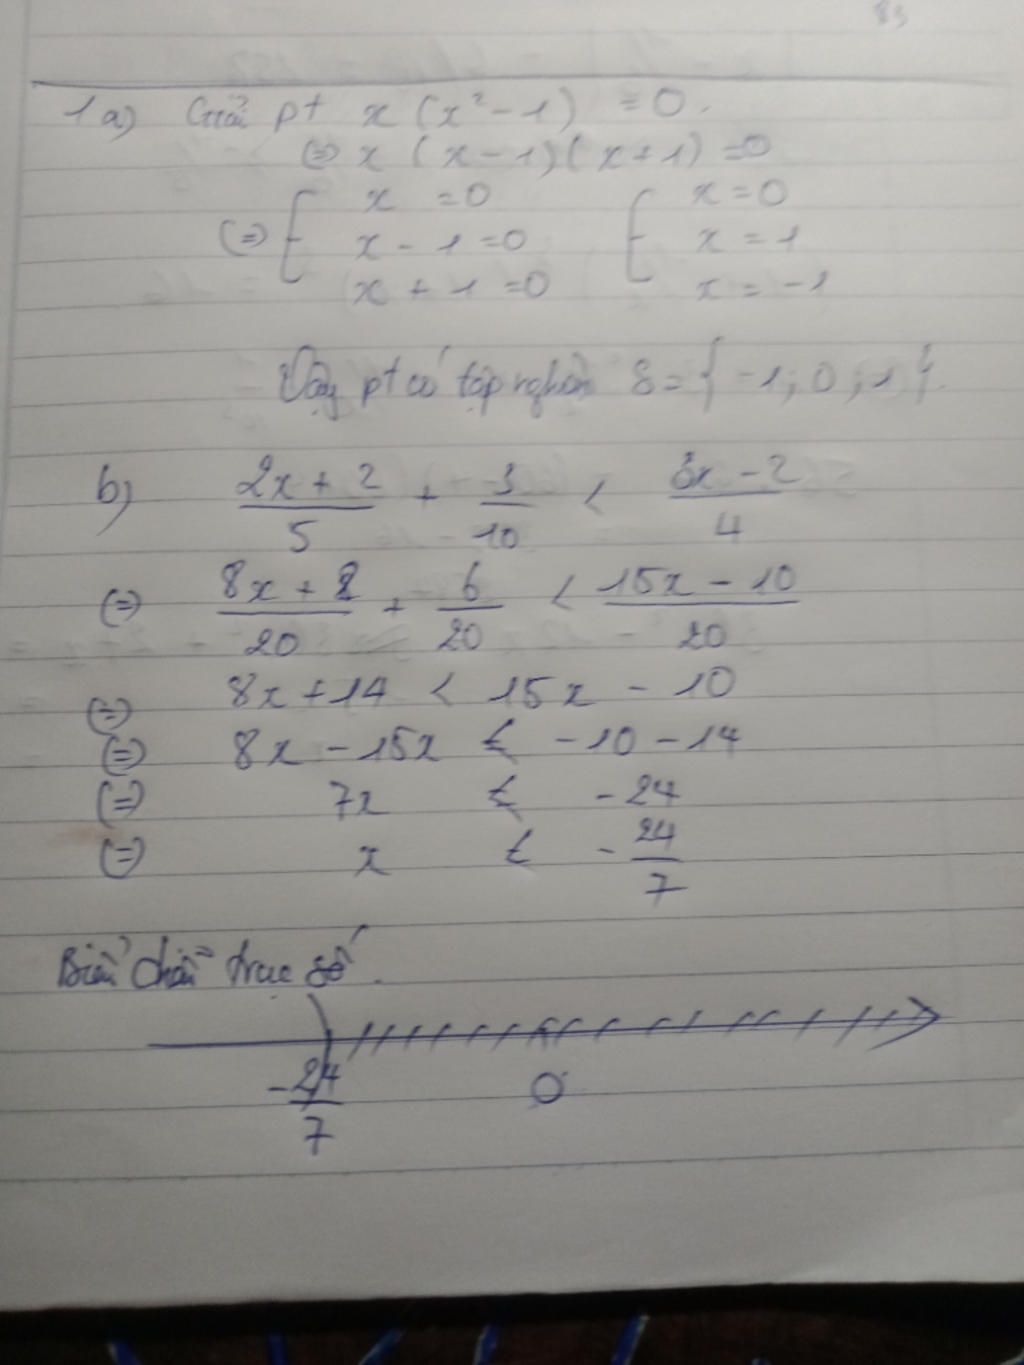 83
1a) Giải pt x (x² - 1) = 0.
(=) x (x - 1)(x + 1) = 0
(=) [ x = 0 [ x = 0
x - 1 = 0 x = 1
x + 1 = 0 x = -1
Vậy pt có tập nghiệm S = { -1; 0; 1 }.
b) (2x + 2)/5 + 3/10 < (3x - 2)/4
(=) (8x + 8)/20 + 6/20 < (15x - 10)/20
(=) 8x + 14 < 15x - 10
(=) 8x - 15x < -10 - 14
(=) 7x < -24
(=) x < -24/7
Biểu diễn trục số.
-24/7 0